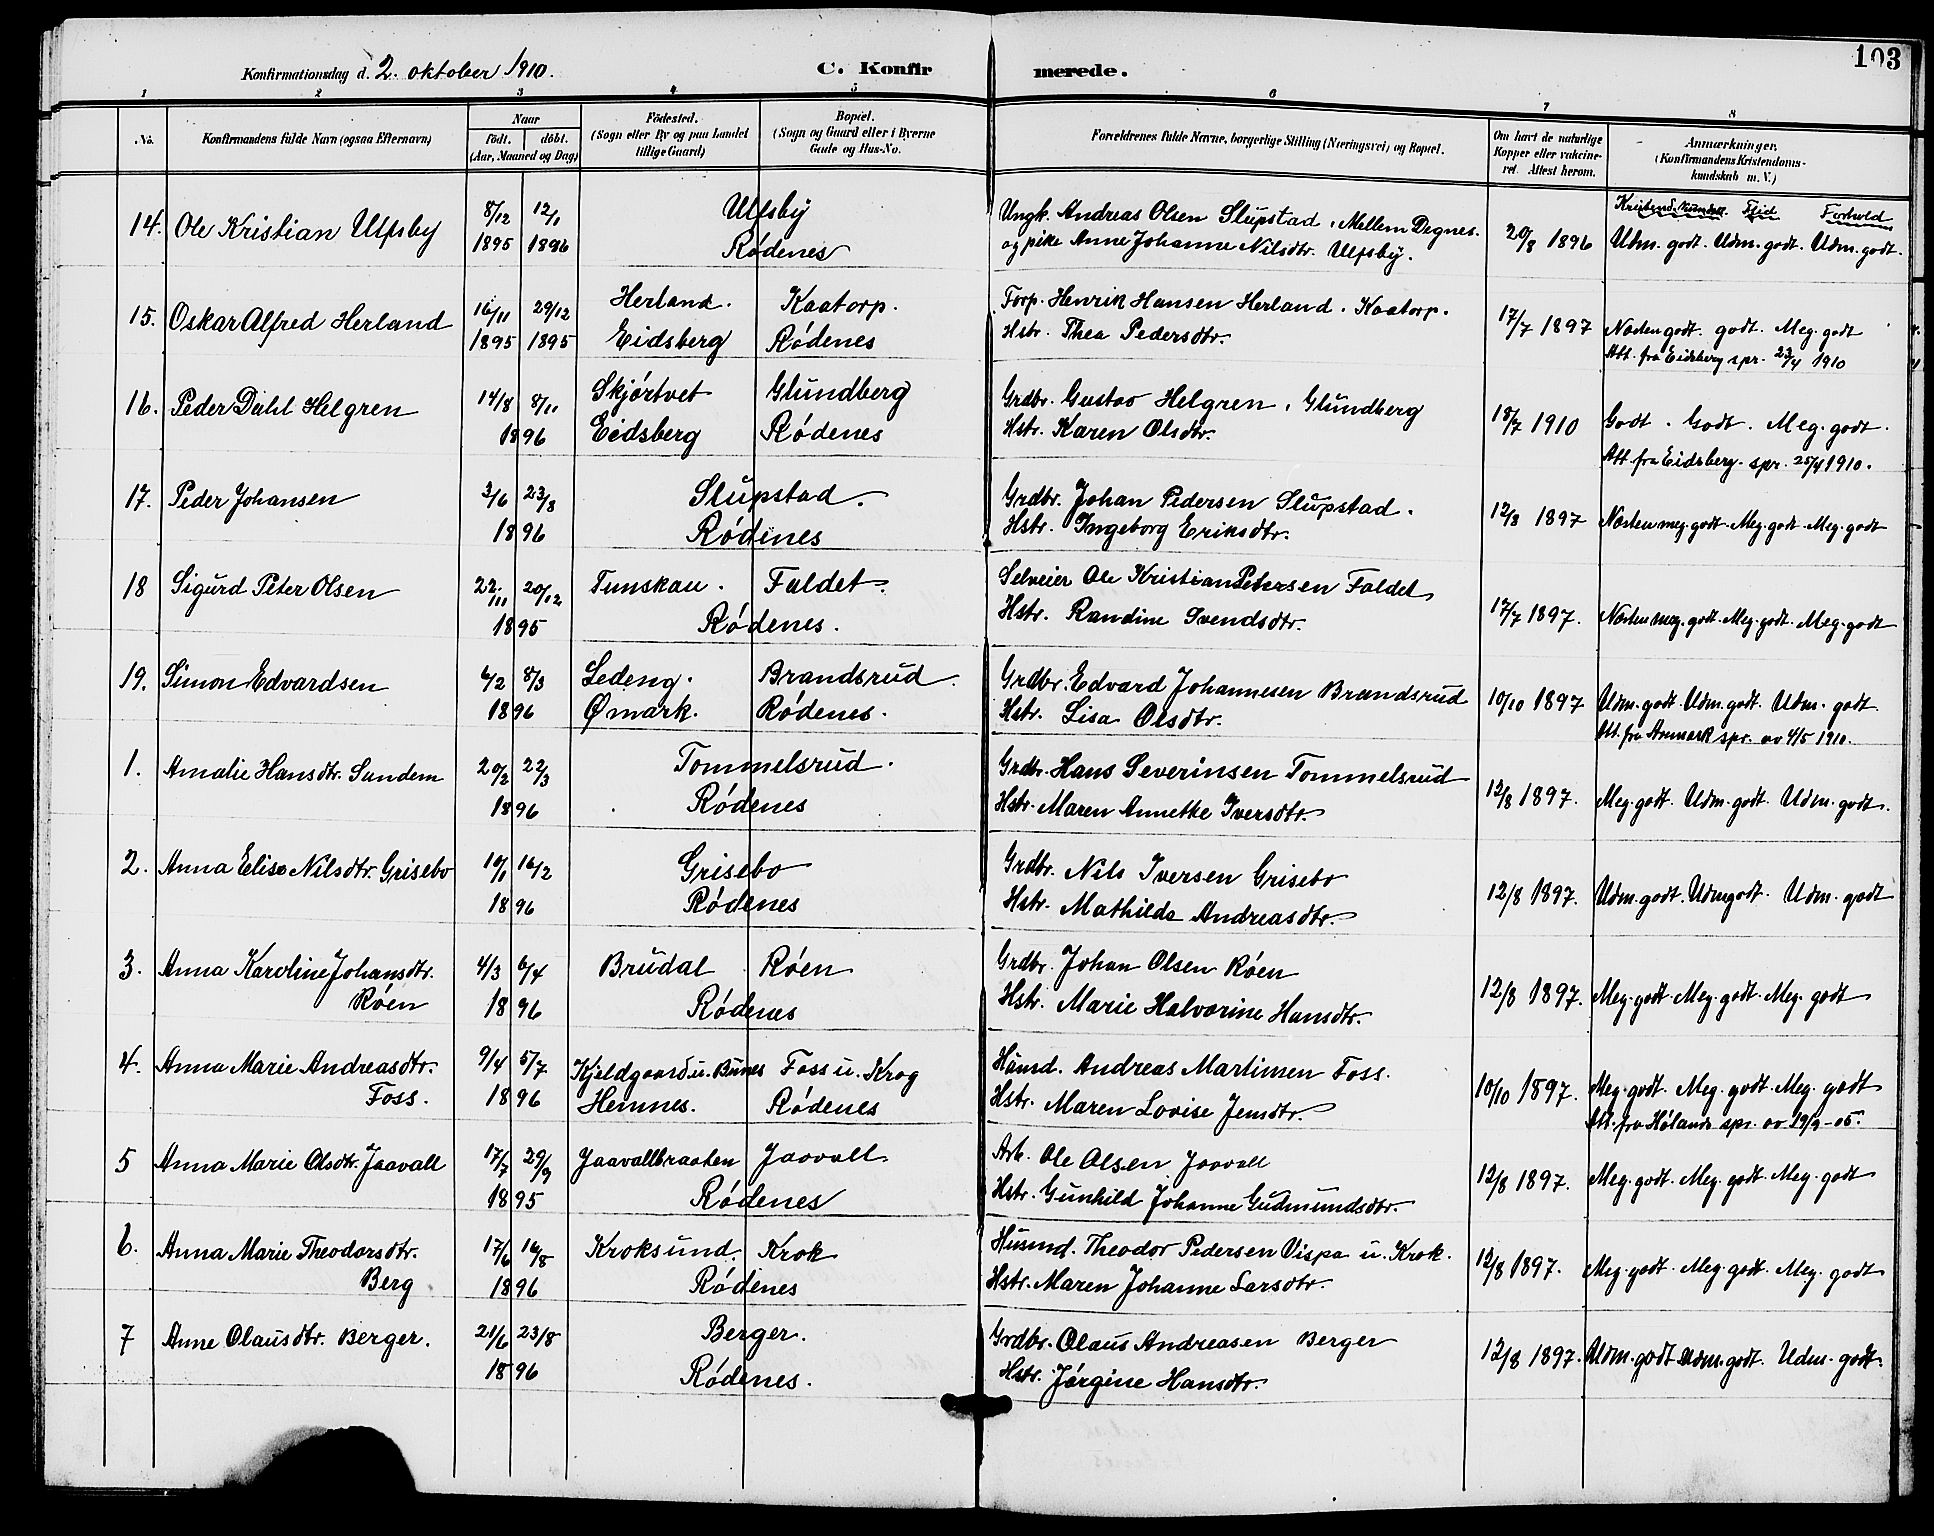 103
Konfirmationsdag d. 2. oktober 1910. C. Konfirmerede.
1 2 3 4 5 6 7 8
No. Konfirmandens fulde Navn (ogsaa Efternavn) Naar födt. döbt. (Aar, Maaned og Dag) Födested. (Sogn eller By og paa Landet tillige Gaard) Bopæl. (Sogn og Gaard eller i Byerne Gade og Hus-No. Forældrenes fulde Navne, borgerlige Stilling (Næringsvei) og Bopæl. Om havt de naturlige Kopper eller vakcineret. Attest herom. Anmærkninger. (Konfirmandens Kristendomskundskab m. V.)
Flid Forhold
14. Ole Kristian Ulfsby 8/12 12/1 Ulfsby Ungk. Andreas Olsen Slupstad, Mellem Degnes. 20/8 1896 Udm. godt. Udm. godt. Udm. godt.
1895 1896 Rödenes og pike Anne Johanne Nilsdtr. Ulfsby.
15. Oskar Alfred Herland 16/11 29/12 Herland. Kaatorp. Forp. Henrik Hansen Herland. Kaatorp. 17/7 1897 Næsten godt. godt. Meg. godt
1895 1895 Eidsberg Rödenes Hstr. Thea Pedersdtr. Att. fra Eidsberg spr. 23/4 1910
16. Peder Dahl Helgren 14/8 8/11 Skjörtvet Glundberg Grdbr. Gustav Helgren, Glundberg 18/7 1910 Godt. Godt. Meg. godt.
1896 Eidsberg Rödenes Hstr. Karen Olsdtr. Att. fra Eidsberg. spr. 25/4 1910.
17. Peder Johansen 3/6 23/8 Slupstad. Grdbr. Johan Pedersen Slupstad. 12/8 1897 Næsten meg. godt. Meg. godt. Meg. godt
1896 Rödenes Hstr. Ingeborg Eriksdtr.
18 Sigurd Peter Olsen 22/11 20/12 Tunskau. Faldet. Selveier Ole Kristian Petersen Faldet 17/7 1897. Næsten meg. godt. Meg. godt. Meg. godt
1895 Rödenes. Hstr. Randine Svendsdtr.
19. Simon Edvardsen 6/2 8/3 Ledeng. Brandsrud. Grdbr. Edvard Johannesen Brandsrud 10/10 1897 Udm. godt. Udm. godt. Udm. godt.
1896 Ømark. Rödenes. Hstr. Lisa Olsdtr. Att. fra Aremark spr. av 4/5 1910.
1. Amalie Hansdtr. Sundem 20/2 22/3 Tommelsrud. Grdbr. Hans Severinsen Tommelsrud 12/8 1897. Meg. godt. Udm. godt. Udm. godt.
1896 Rödenes Hstr. Maren Annethe Iversdtr.
2. Anna Elise Nilsdtr. Grisebo 10/1 16/2 Grisebo Grdbr. Nils Iversen Grisebo 12/8 1897. Udm. godt. Udm godt. Udm. godt
1896 Rödenes Hstr. Mathilda Andreasdtr.
3. Anna Karoline Johansdtr. 4/3 6/4 Brudal Röen Grdbr. Johan Olsen Röen 12/8 1897. Meg. godt. Meg. godt. Meg. godt
Röen 1896 Rödenes Hstr. Marie Halvorine Hansdtr.
4. Anna Marie Andreasdtr. 9/4 5/7 Kjeldgaard u. Bunes Foss u. Krog Husmd. Andreas Martinsen Foss. 10/10 1897. Meg. godt. Meg. godt. Meg. godt
Foss. 1896 Hemnes. Rödenes Hstr. Maren Lovise Jensdtr. Att. fra Höland spr. av 19/9-05.
5 Anna Marie Olsdtr. Jaavall 17/7 29/9 Jaavallbraaten Jaavall Arb. Ole Olsen Jaavall 12/8 1897. Meg. godt. Meg. godt. Meg. godt
1895 Rödenes Hstr. Gunhild Johanne Gudmundsdtr.
6. Anna Marie Theodorsdtr. 17/6 16/8 Kroksund. Krok Husmd. Theodor Pedersen Vispa u. Krok. 12/8 1897. Meg. godt. Meg. godt. Meg. godt
Berg 1896 Rödenes Hstr. Maren Johanne Larsdtr.
7 Anne Olausdtr. Berger. 21/6 23/8 Berger. Grdbr. Olaus Andreasen Berger 12/8 1897. Udm. godt Udm. godt. Udm. godt.
1896 Rödenes. Hstr. Jörgine Hansdtr.